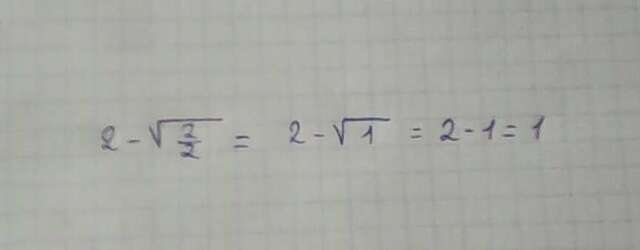 2 - √(2/2) = 2 - √1 = 2 - 1 = 1